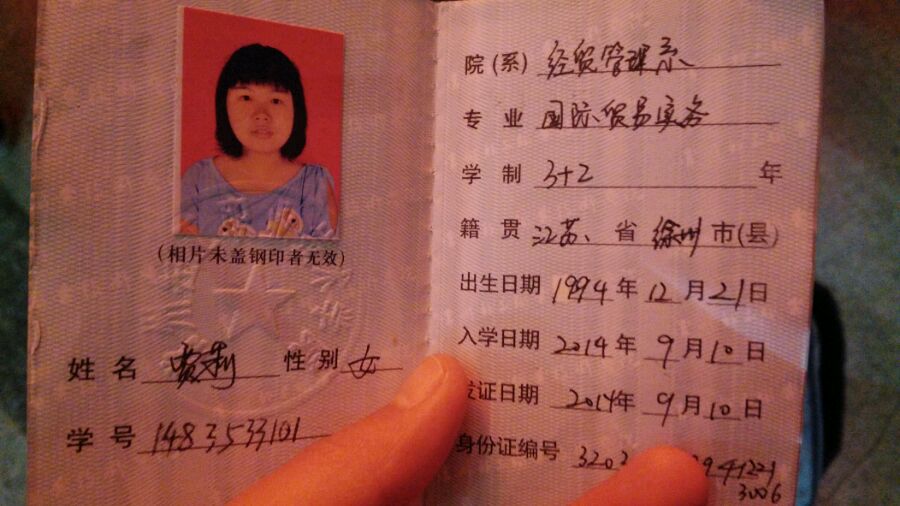 (相片未盖钢印者无效)
姓名 性别 女
学号 1483533101
院(系) 经贸管理系
专业 国际贸易实务
学制 3+2 年
籍贯 江苏 省 徐州 市(县)
出生日期 1994年12月21日
入学日期 2014年9月10日
发证日期 2014年9月10日
身份证编号 3203 941221
3006